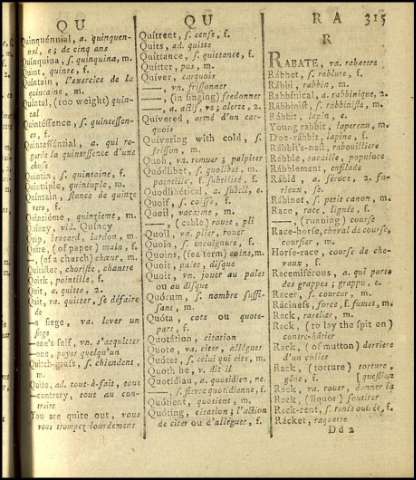 QU
QU
RA 315
Quinquénnial, a. quinquennal,
es de cinq ans
Quinquina, s. quinquina, m.
Quint, quinte, f.
Quintain, l'exercice de la
quintaine, m.
Quintal, (100 weight) quintal
Quintéssence, s. quintessence, f.
Quintessential, a. qui
la quintessence d'une
Quintin, s. quintaine, f.
Quintuple, quintuple, m.
Quinzain, stance de quinze
Quinzième, quinzieme, m.
Quinzy, vid. Quincy
Quip, brocard, lardon, m.
Quire, (of paper) main, f.
— (of a church) chœur, m.
Quirister, choriste, chantre
Quirk, pointille, f.
Quit, a. quitte, 2.
Quit, va. quitter, se défaire
de
— a siege, va. lever un
siege
— one's self, vn. s'acquitter
— one, payer quelqu'un
Quitch-grass, s. chiendent, m.
Quite, ad. tout-à-fait, tout
— contrary, tout au contraire
You are quite out, vous
vous trompez lourdement
Quitrent, s. cense, f.
Quits, ad. quitte
Quittance, s. quittance, f.
Quitter, pus, m.
Quiver, carquois
—, vn. frissonner
—, (in singing) fredonner
—, a. actif, ve; alerte, 2.
Quivered, armé d'un carquois
Quivering with cold, s.
frisson, m.
Quob, vn. remuer; palpiter
Quódlibet, s. quolibet, m.
pointille, f. subtilité, f.
Quodlibétical, a. subtil, e.
Quoif, s. coiffe, f.
Quoil, vacarme, m.
—, (cable) roue, pli
Quoil, va. plier, rouer
Quoin, s. encoignure, f.
Quoins, (sea term) coins, m.
Quoit, palet, disque
Quoit, vn. jouer au palet
ou au disque
Quórum, s. nombre suffisant, m.
Quóta, cote ou quote-part, f.
Quotátion, citation
Quote, va. citer, alléguer
Quóter, s. celui qui cite, m.
Quoth he, v. dit il
Quotidian, a. quotidien, ne.
—, s. fievre quotidienne, f.
Quótient, quotient, m.
Quóting, citation; l'action
de citer ou d'alléguer, f.
R
RABATE, va. rabattre
Rábbet, s. rablure, f.
Rábbi, rabbin, m.
Rabbínical, a. rabbinique, 2.
Rábbinist, s. rabbiniste, m.
Rábbit, lapin, e.
Young rabbit, lapereau, m.
Doe-rabbit, lapine, f.
Rábbit's-nest, rabouilliere
Rábble, racaille, populace
Rábblement, enfilade
Rábid, a. féroce, 2. furieux, se.
Rábinet, s. petit canon, m.
Race, race, lignée, f.
— (running) course
Race-horse, cheval de course,
coursier, m.
Horse-race, course de chevaux, f.
Racemíferous, a. qui porte
des grappes; grappu, e.
Rácer, s. coureur, m.
Ráciness, force, f. fumet, m.
Rack, ratelier, m.
Rack, (to lay the spit on)
contre-hâtier
Rack, (of mutton) derriere
d'un collet
Rack, (torture) torture,
gêne, f. [question
Rack, va. rouer, donner la
Rack, (liquor) soutirer
Rack-rent, s. rente outrée, f.
Rácket, raquette
Dd2